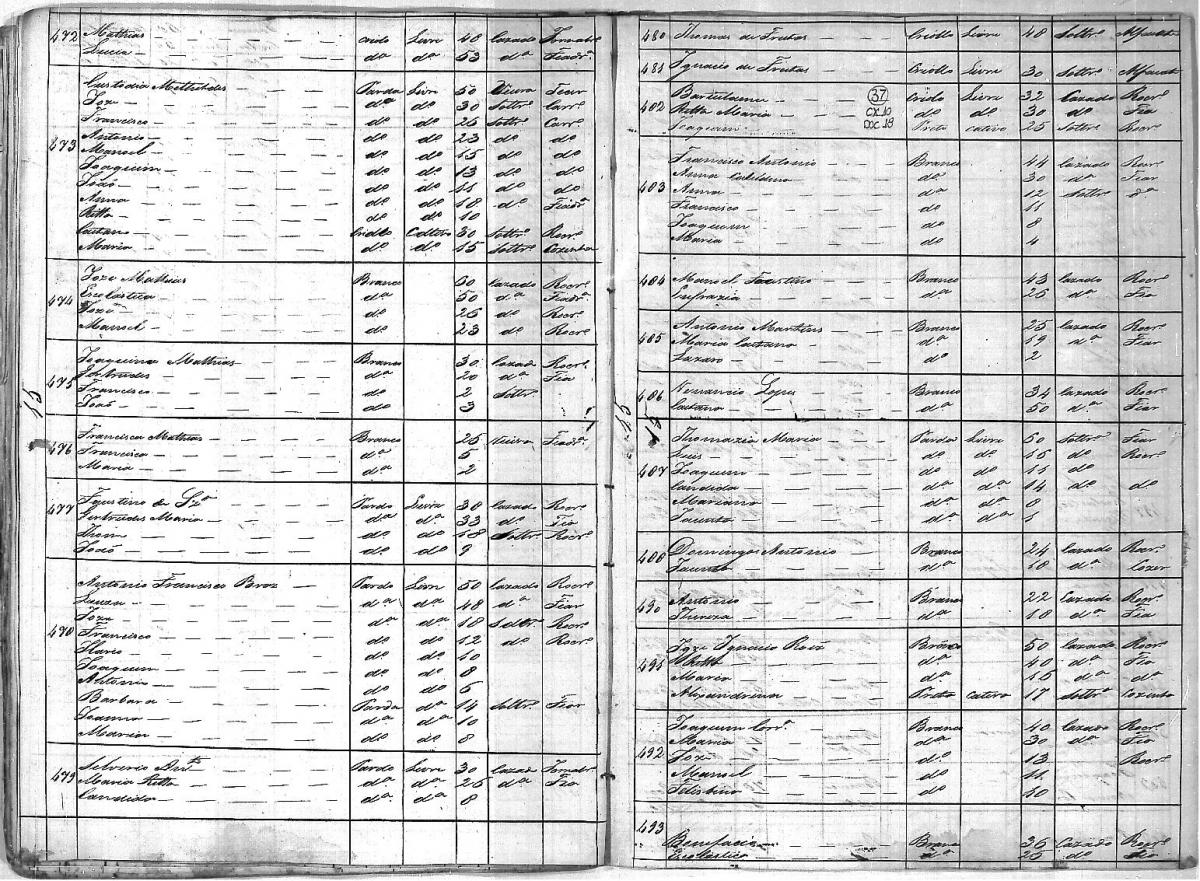 472 Mathias — Criolo Livre 48 Cazado Jornalr.º
Lucia — dª dª 53 dº Fiadrª
Custodia — Parda Livr 50 Viuva Fiar
Joze — dª dº 30 Soltrº Carrº
Francisco — dº dº 25 Soltrº Carrº
Antonio — dº dº 23 dº dº
473 Manoel — dº dº 15 dº dº
Joaquim — dº dº 13 dº dº
João — dº dº 11 dº dº
Anna — dº dº 18 dº Fiadª
Ritta — dº dº 10
Caetano — Criollo Cativo 30 Soltrº Rocrº
Maria — dº dº 15 Soltrº Cozinha
Joze Mathias — Branco 60 Cazado Rocrº
474 Escolastica — dª 50 dª Fiadrª
Joze — dº 25 dº Rocrº
Manoel — dº 23 dº Rocrº
Joaquina Mathias — Branco 30 Cazad Rocrº
475 Gertrudes — dª 20 dª Fia
Francisco — dº 2 Soltrº
João — dº 3
Francisca Mathias — Branca 25 Viuva Fiadrª
476 Francisca — dª 5
Maria — dª 2
477 Faustino de Szª — Pardo Livre 38 Cazado Rocrº
Gertrudes Maria — dª dª 33 dº Fia
dº dº 18 Soltrº Rocrº
João — dº dº 9
Antonio Francisco Braz — Pardo Livr 50 Cazado Rocrº
Luiza — dª dª 48 dª Fiar
Joze — dº dº 18 Soltrº Rocrº
470 Francisco — dº dº 12 dº Rocrº
Ilario — dº dº 10
Joaquim — dº dº 8
Antonio — dº dº 6
Barbara — Parda dª 14 Soltrº Fiar
Joanna — dª dª 10
Maria — dº dº 8
479 Silverio — Pardo Livr 30 Cazad Jornalrº
Maria Ritta — dª dª 26 dª Fia
Candida — dª dª 8
480 Thomas de Freitas — Criollo Livre 48 Soltrº
481 Ignacio de Freitas — Criollo Livre 30 Soltrº
37
CX 10
DOC 19
402 Criolo Livre 32 Cazado Rocrº
Ritta Maria — dº dº 30 dº Fia
Joaquim — Preto Cativo 25 Soltrº Rocrº
Francisco Antonio — Branco 44 Cazado Rocrº
Anna — dº 30 dª Fiar
403 Anna — dª 12 Soltrº dª
Francisco — dº 11
Joaquim — dº 8
Maria — dº 4
404 Manoel Faustino — Branco 43 Cazado Rocrº
Eufrazia — dª 25 dª Fia
Antonio — Branco 25 Cazado Rocrº
405 Maria Caetana — dª 19 dª Fiar
Lazaro — dº 2
406 Venancio Lopes — Branco 34 Cazado Rocrº
Caetana — dª 50 dª Fiar
Thomazia Maria — Parda Livre 50 Soltrª Fiar
Luis — dº dº 15 dº Rocrº
407 Joaquim — dº dº 11 dº
Candida — dª dª 14 dº do
Mariano — dª dª 8
Jacinta — dª dª 1
400 Domingos Antonio — Branco 24 Cazado Rocrº
dª 18 dª Cozer
490 Antonio — Branco 22 Cazado Rocrº
Thereza — dª 18 dª Fia
Joze Ignacio Roiz — Branco 50 Cazado Rocrº
491 dª 40 dª Fia
Maria — dª 15 dª da
Alexandrina — Preta Cativa 17 Soltrª
Joaquim Corrª — Branco 40 Cazado Rocrº
Maria — dª 30 dª Fia
492 Joze — dº 13 Rocrº
Manoel — dº 11
Felisbino — dº 10
493
Bonifacio — Branco 36 Cazado Rocrº
Escolastica — dª 25 dº Fia